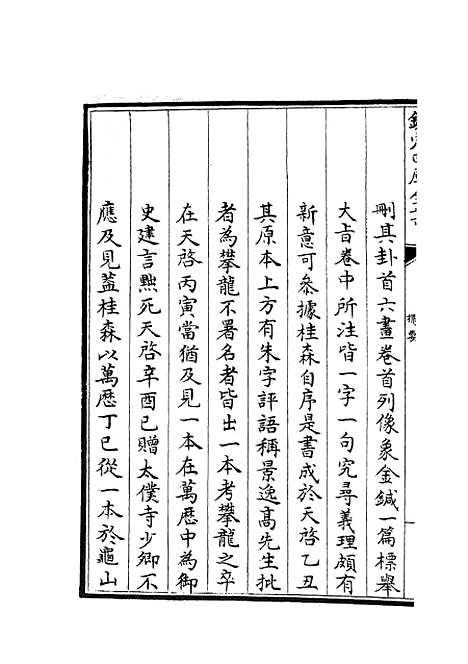 刪其卦首六畫卷首列像象金鍼一篇標舉
大旨卷中所注皆一字一句究尋義理頗有
新意可參據桂森自序是書成於天啓乙丑
其原本上方有朱字評語稱景逸高先生批
者為攀龍不署名者皆出一本考攀龍之卒
在天啓丙寅當猶及見一本在萬歴中為御
史建言黜死天啓辛酉已贈太僕寺少卿不
應及見蓋桂森以萬歴丁巳從一本於龜山
提要